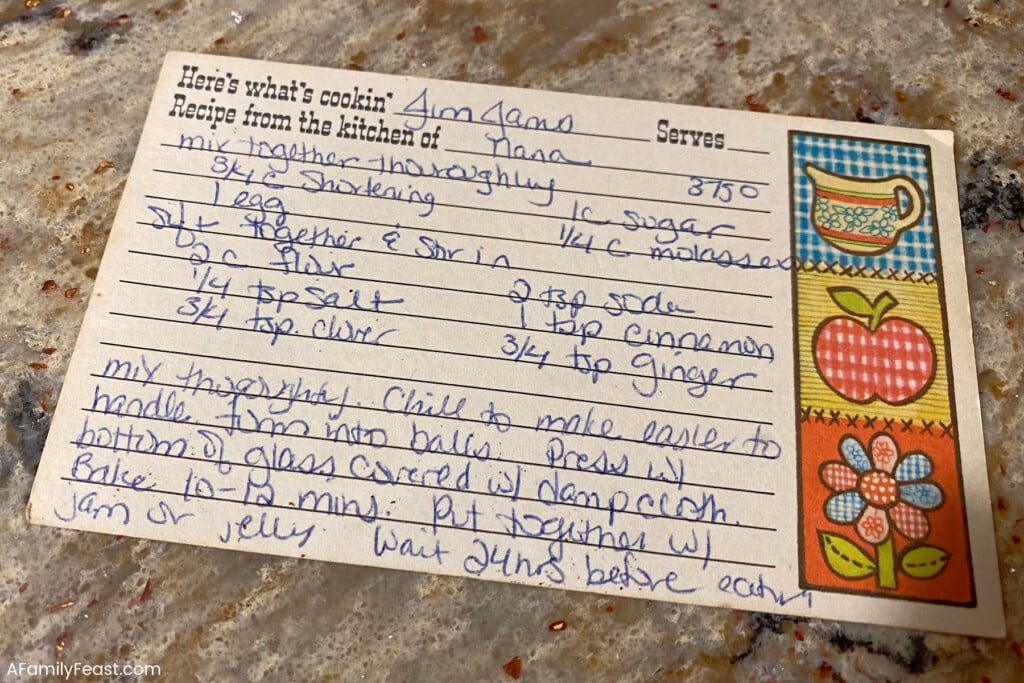 Here's what's cookin' Jim Jams Serves
Recipe from the kitchen of Nana
mix together thoroughly 375°
3/4 c Shortening 1c sugar
1 egg 1/4 c molasses
Sift together & Stir in
2 c flour 2 tsp soda
1/4 tsp salt 1 tsp cinnamon
3/4 tsp. clover 3/4 tsp ginger
mix thoroughly. Chill to make easier to
handle. Form into balls. Press w/
bottom of glass covered w/ damp cloth.
Bake 10-12 mins. Put together w/
jam or jelly. Wait 24 hrs before eating
AFamilyFeast.com